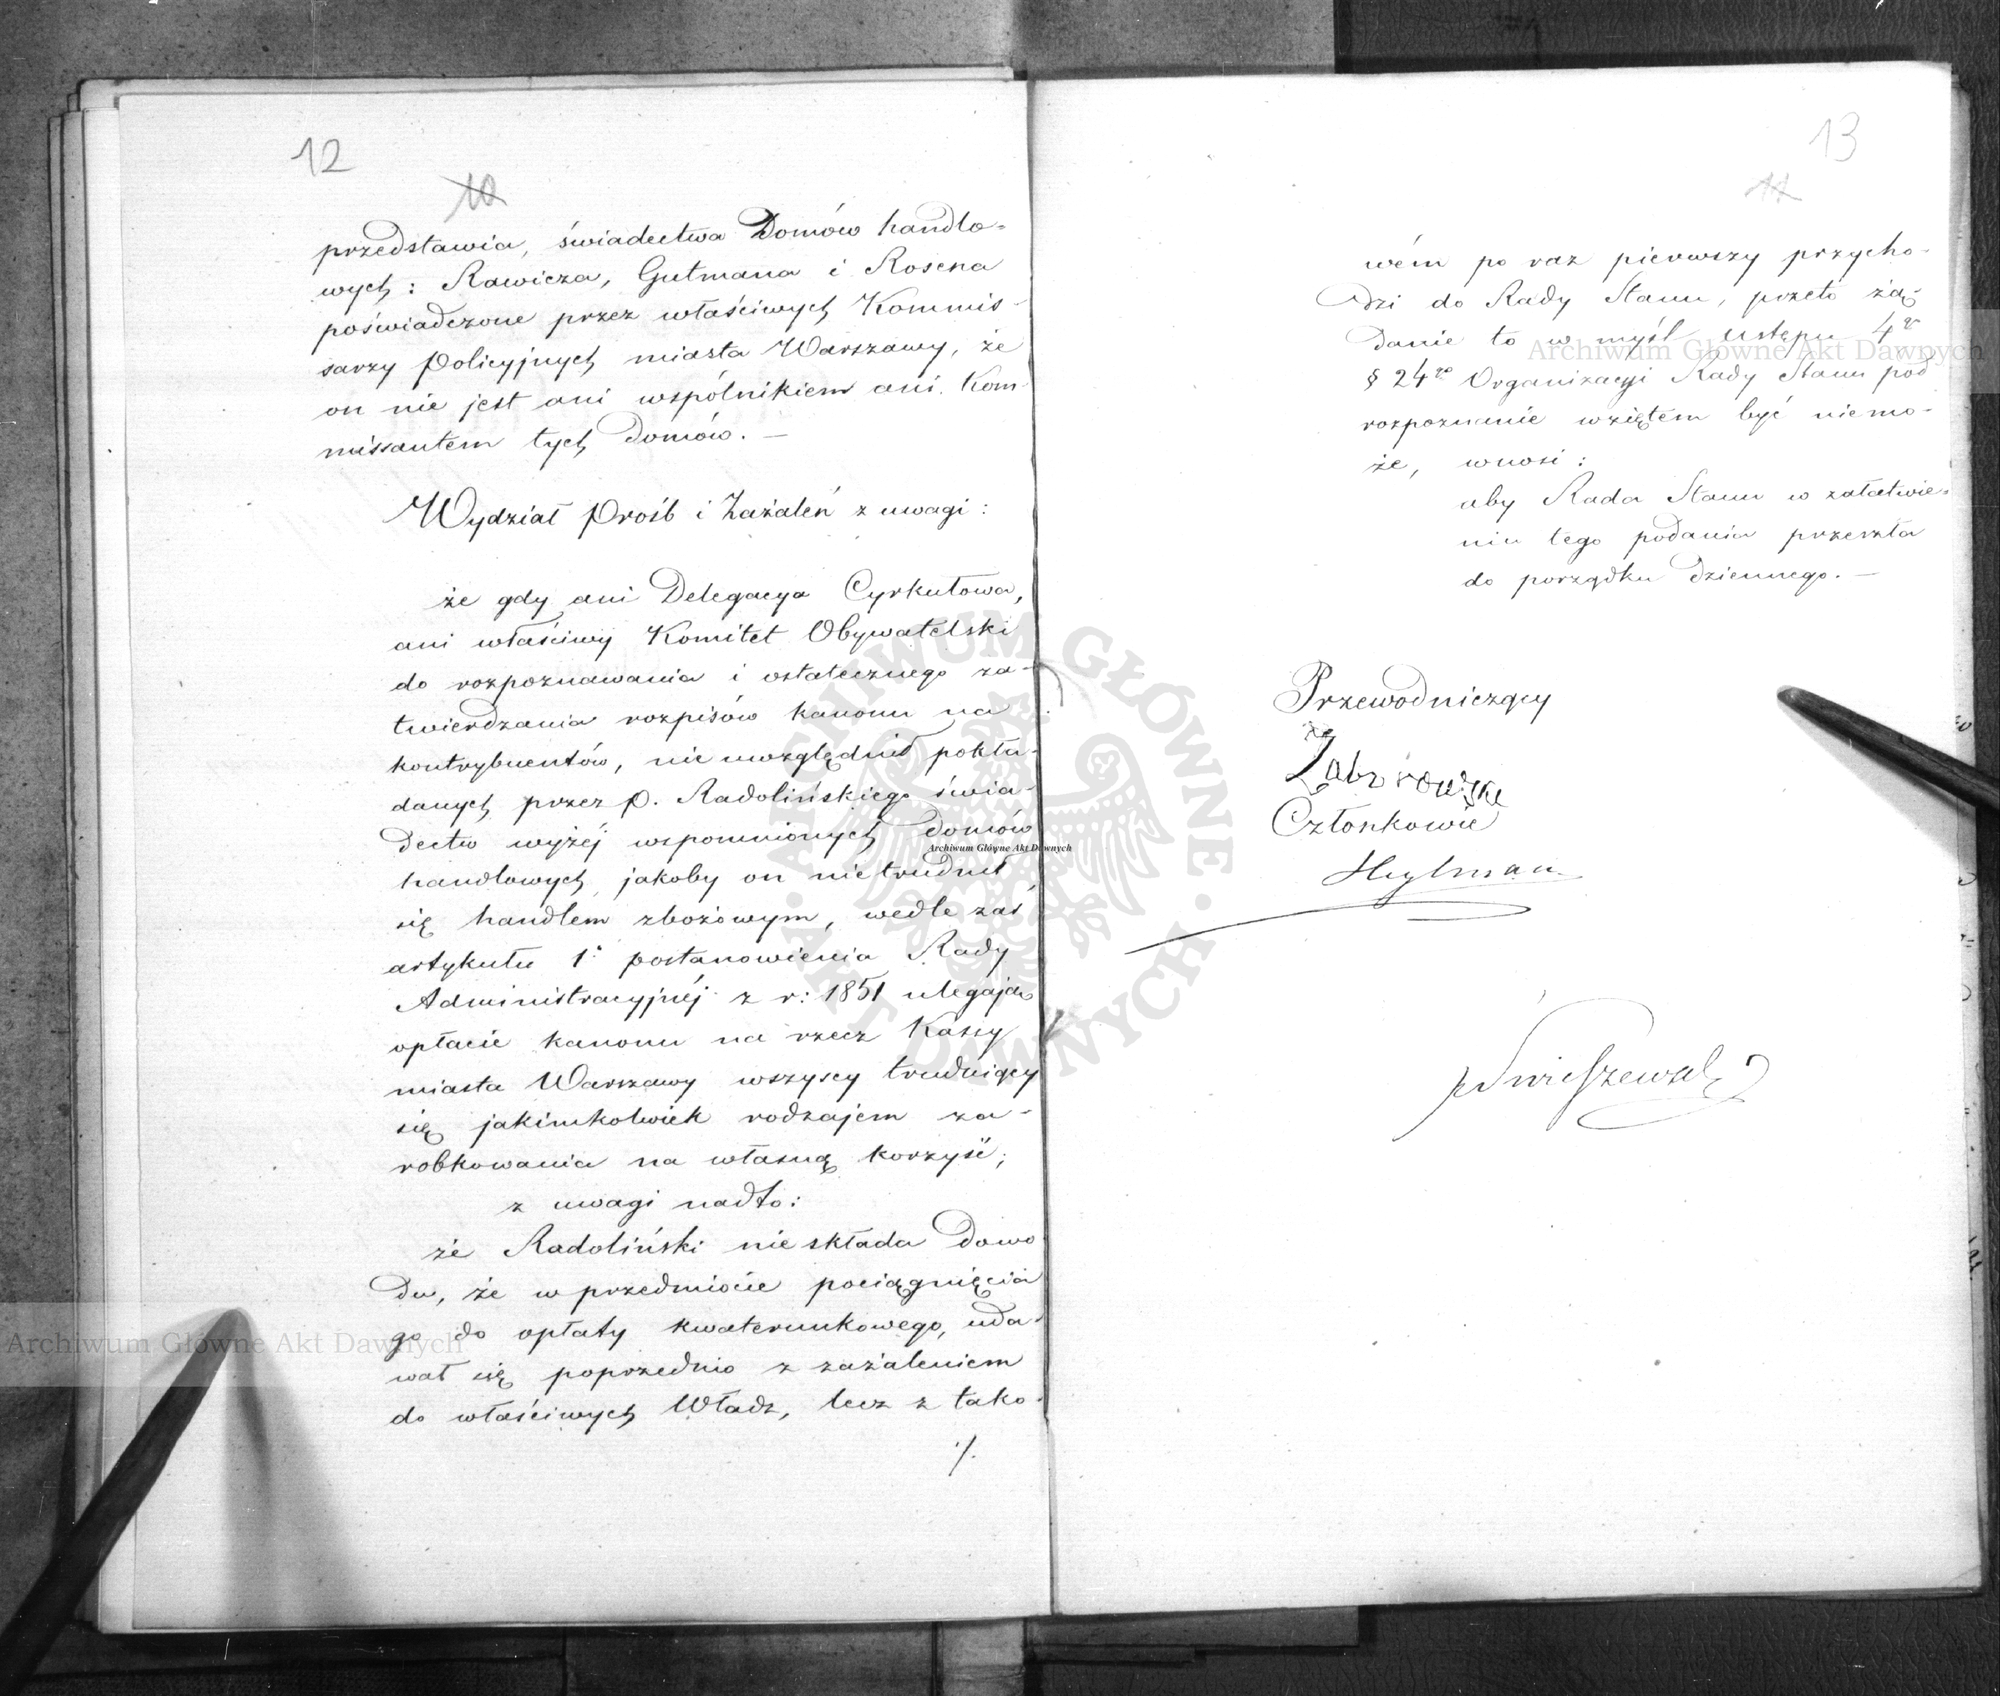 12
10
przedstawia, świadectwa Domów handlo=
wych: Rawicza, Gutmana i Rosena
poświadczone przez właściwych Kommis-
sarzy Policyjnych miasta Warszawy, że
on nie jest ani wspólnikiem ani Kom-
missantem tych Domów. —
Wydział Próśb i Zażaleń z uwagi:
że gdy ani Delegacya Cyrkułowa,
ani właściwy Komitet Obywatelski
do rozpoznawania i ostatecznego za-
twierdzania rozpisów kanonu na
kontrybuentów, nie uwzględnił pokła-
danych przez p. Radolińskiego świa-
dectw wyżéj wspomnionych domów
handlowych, jakoby on nie trudnił
się handlem zbożowym, wedle zaś
artykułu 1° postanowienia Rady
Administracyjnéj z r: 1851 ulegają
opłacie kanonu na rzecz Kassy
miasta Warszawy wszyscy trudniący
się jakimkolwiek rodzajem za-
robkowania na własną korzyść;
z uwagi nadto:
że Radoliński nie składa dowo
du, że w przedmiocie pociągnięcia
go do opłaty kwaterunkowego, uda-
wał się poprzednio z zażaleniem
do właściwych Władz, lecz z tako-
./.
13
11
wém po raz pierwszy przycho-
dzi do Rady Stanu, przeto żą-
danie to w myśl ustępu 4go
§ 24go Organizacyi Rady Stanu pod
rozpoznanie wziętem być niemo-
że, wnosi:
aby Rada Stanu w załatwie=
niu tego podania przeszła
do porządku dziennego. —
Przewodniczący
Zaborowski
Członkowie
Heylman
Archiwum Główne Akt Dawnych
Archiwum Główne Akt Dawnych
Archiwum Główne Akt Dawnych
ARCHIWUM GŁÓWNE · AKT DAWNYCH ·